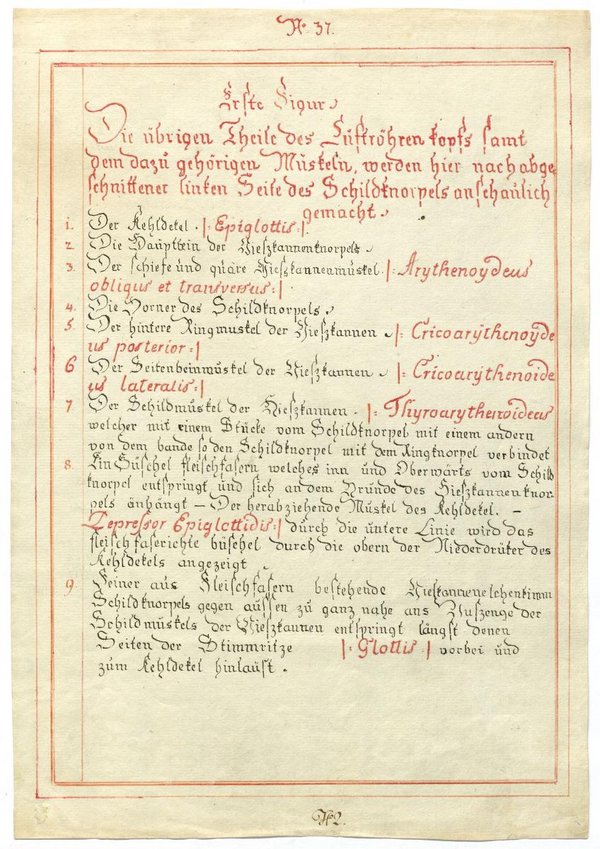 No. 37.
Erste Figur.
Die übrigen Theile des Lüftröhren kopfs samt
dem dazu gehörigen Müskeln, werden hier nach abge
schnittener linken Seite des Schildknorpels anschaulich
gemacht.
1. Der Kehldekel. |: Epiglottis :|
2. Die Haüptbein der Gieszkannenknorpels.
3. Der schiefe und quäre Gieszkannenmüskel |: Arythenoydeus
obliqus et transversus :|
4. Die Horner des Schildknorpels.
5. Der hintere Ringmuskel der Gieszkannen |: Cricoarythenoyde
us posterior :|
6 Der Seitenbeinmüskel der Gieszkannen |: Cricoarythenoide
us lateralis :|
7 Der Schildmüskel der Gieszkannen. |: Thyroarythenoideus
welcher mit einem Stücke vom Schildknorpel mit einem andern
von dem bande so den Schildknorpel mit dem Ringknorpel verbindet
8. Ein Büschel fleischfasern welches inn und Oberwärts vom Schild
knorpel entspringt und sich an dem Grunde des Gieszkannenknor
pels anhängt – Der herabziehende Müskel des Kehldekel. –
Depressor Epiglottidis :| dürch die üntere Linie wird das
fleischfaserichte büschel durch die obern der Nidderdrüker des
Kehldekels angezeigt
9 Feiner aus Fleischfasern bestehende
Schildknorpels gegen aüssen zü ganz nahe ans der
Schildmüskels der Gieszkannen entspringt längst denen
Seiten der Stimmritze |: Glottis :| vorbei und
züm Kehldekel hinlaüft.